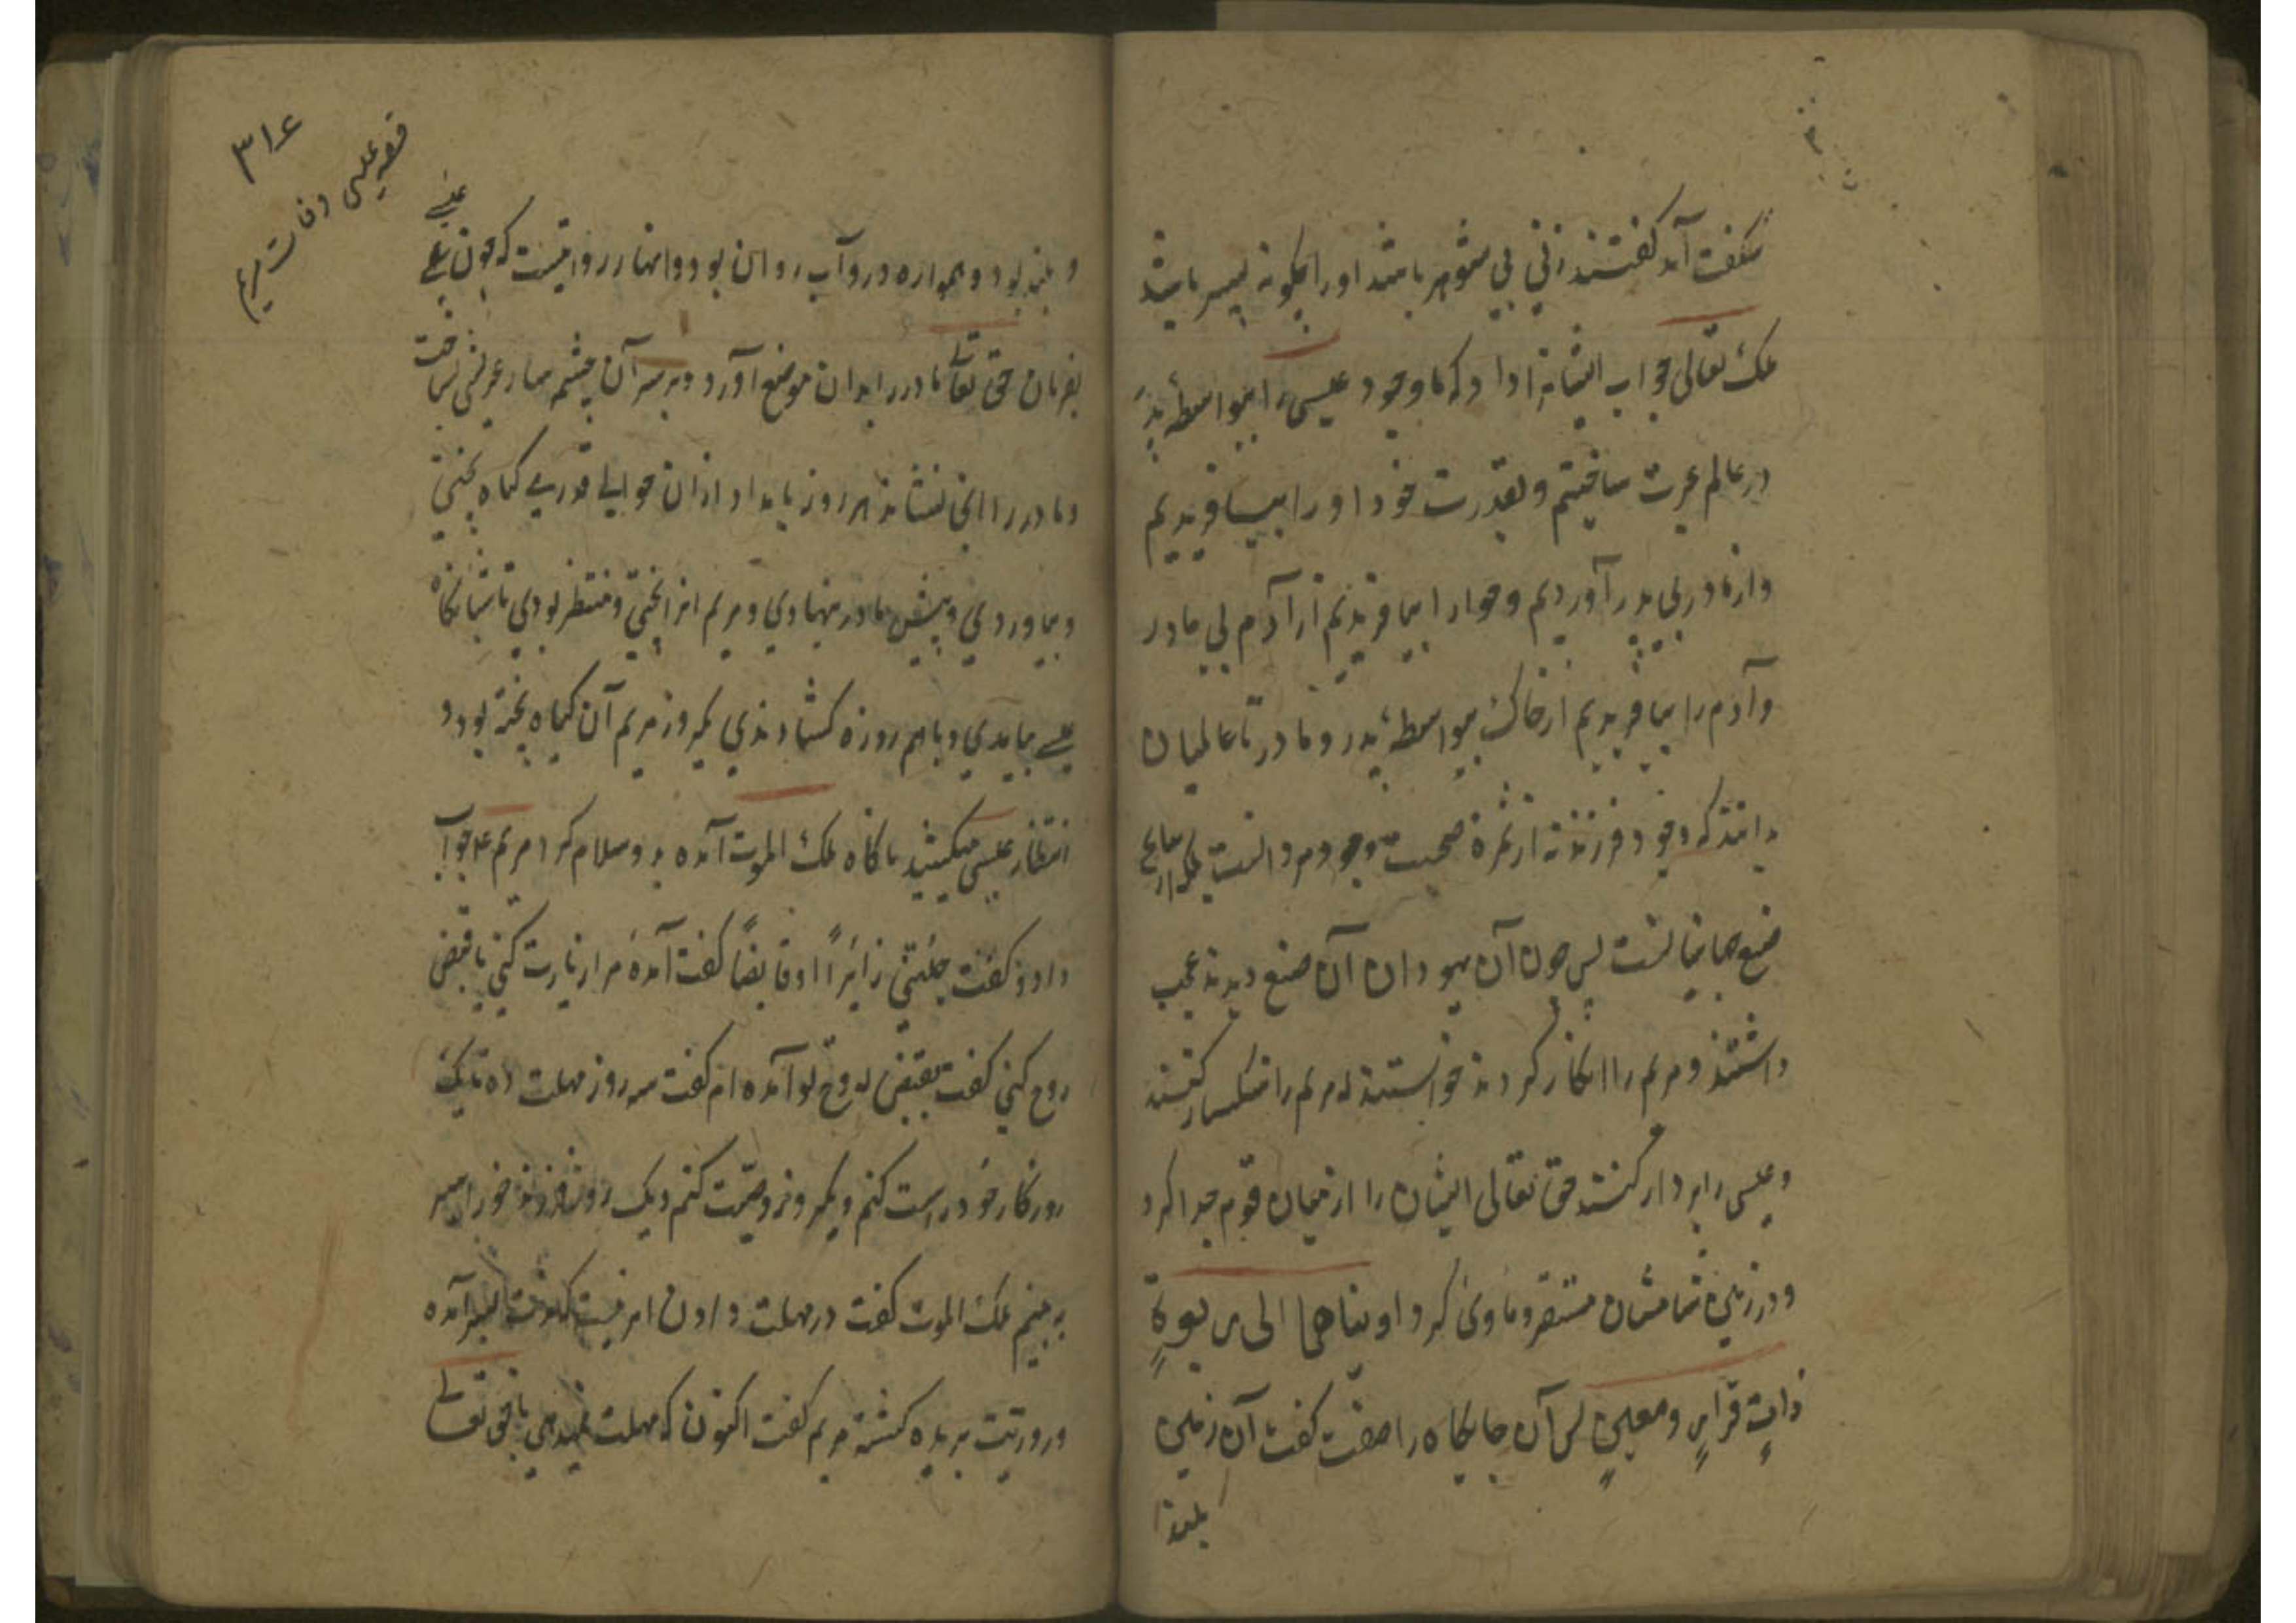 شکفت آمد کفتند زنی بی شوهر باشد اورا چکونه پسر باشد
ملک تعالی جواب ایشانرا داد که ما وجود عیسی را بیواسطهٔ پدر
در عالم عبرت ساختیم و بقدرت خود او را بیافریدیم
و از مادر بی پدر آوردیم و حوا را بیافریدیم از آدم بی مادر
و آدم را بیافریدیم از خاک بیواسطهٔ پدر و مادر تا عالمیان
بدانند که وجود فرزند نه از ثمرهٔ صحبت وجود مرد است بلکه از
صنع ماست پس چون آن یهودان آن صنع دیدند عجب
داشتند و مریم را انکار کردند خواستند که مریم را سنکسار کنند
و عیسی را بردار کنند حق تعالی ایشان را از میان قوم جدا کرد
و در زمین شامشان مستقر و ماوی کرد و اویناهما الی ربوةٍ
ذاتِ قرارٍ ومعینٍ پس آن جایکاه را صفت کفت آن زمین
بلند
۳۱۶
قصه عیسی وفات مریم
و بلند بود و همواره درو آب روان بود و اما در روایتست که چون عیسی
بفرمان حق تعالی مادر را بدان موضع آورد و بر سر آن چشمه سار عریشی ساخت
و مادر را آنجا نشاند هر روز بامداد از آن حوالی قدری کیاه بچیدی
و بیاوردی و پیش مادر نهادی و مریم آنرا پختی و منتظر بودی تا شبانکاه
عیسی بیامدی و باهم روزه کشادندی یکروز مریم آن کیاه پخته بود و
انتظار عیسی میکشید ناکاه ملک الموت آمده برو سلام کرد مریم ع جواب
داد و کفت جئتنی زائراً او قابضاً کفت آمدهٔ مرا زیارت کنی یا قبض
روح کنی کفت بقبض روح تو آمده ام کفت سه روز مهلت ده تا یک
روز کار خود راست کنم و یکروز وصیت کنم و یک روز فرزند خود را سیر
به بینم ملک الموت کفت در مهلت دادن امر نیست که وقت بسر آمده
و روزیت بریده کشته مریم کفت اکنون که مهلت نمیدهی با حق تعالی